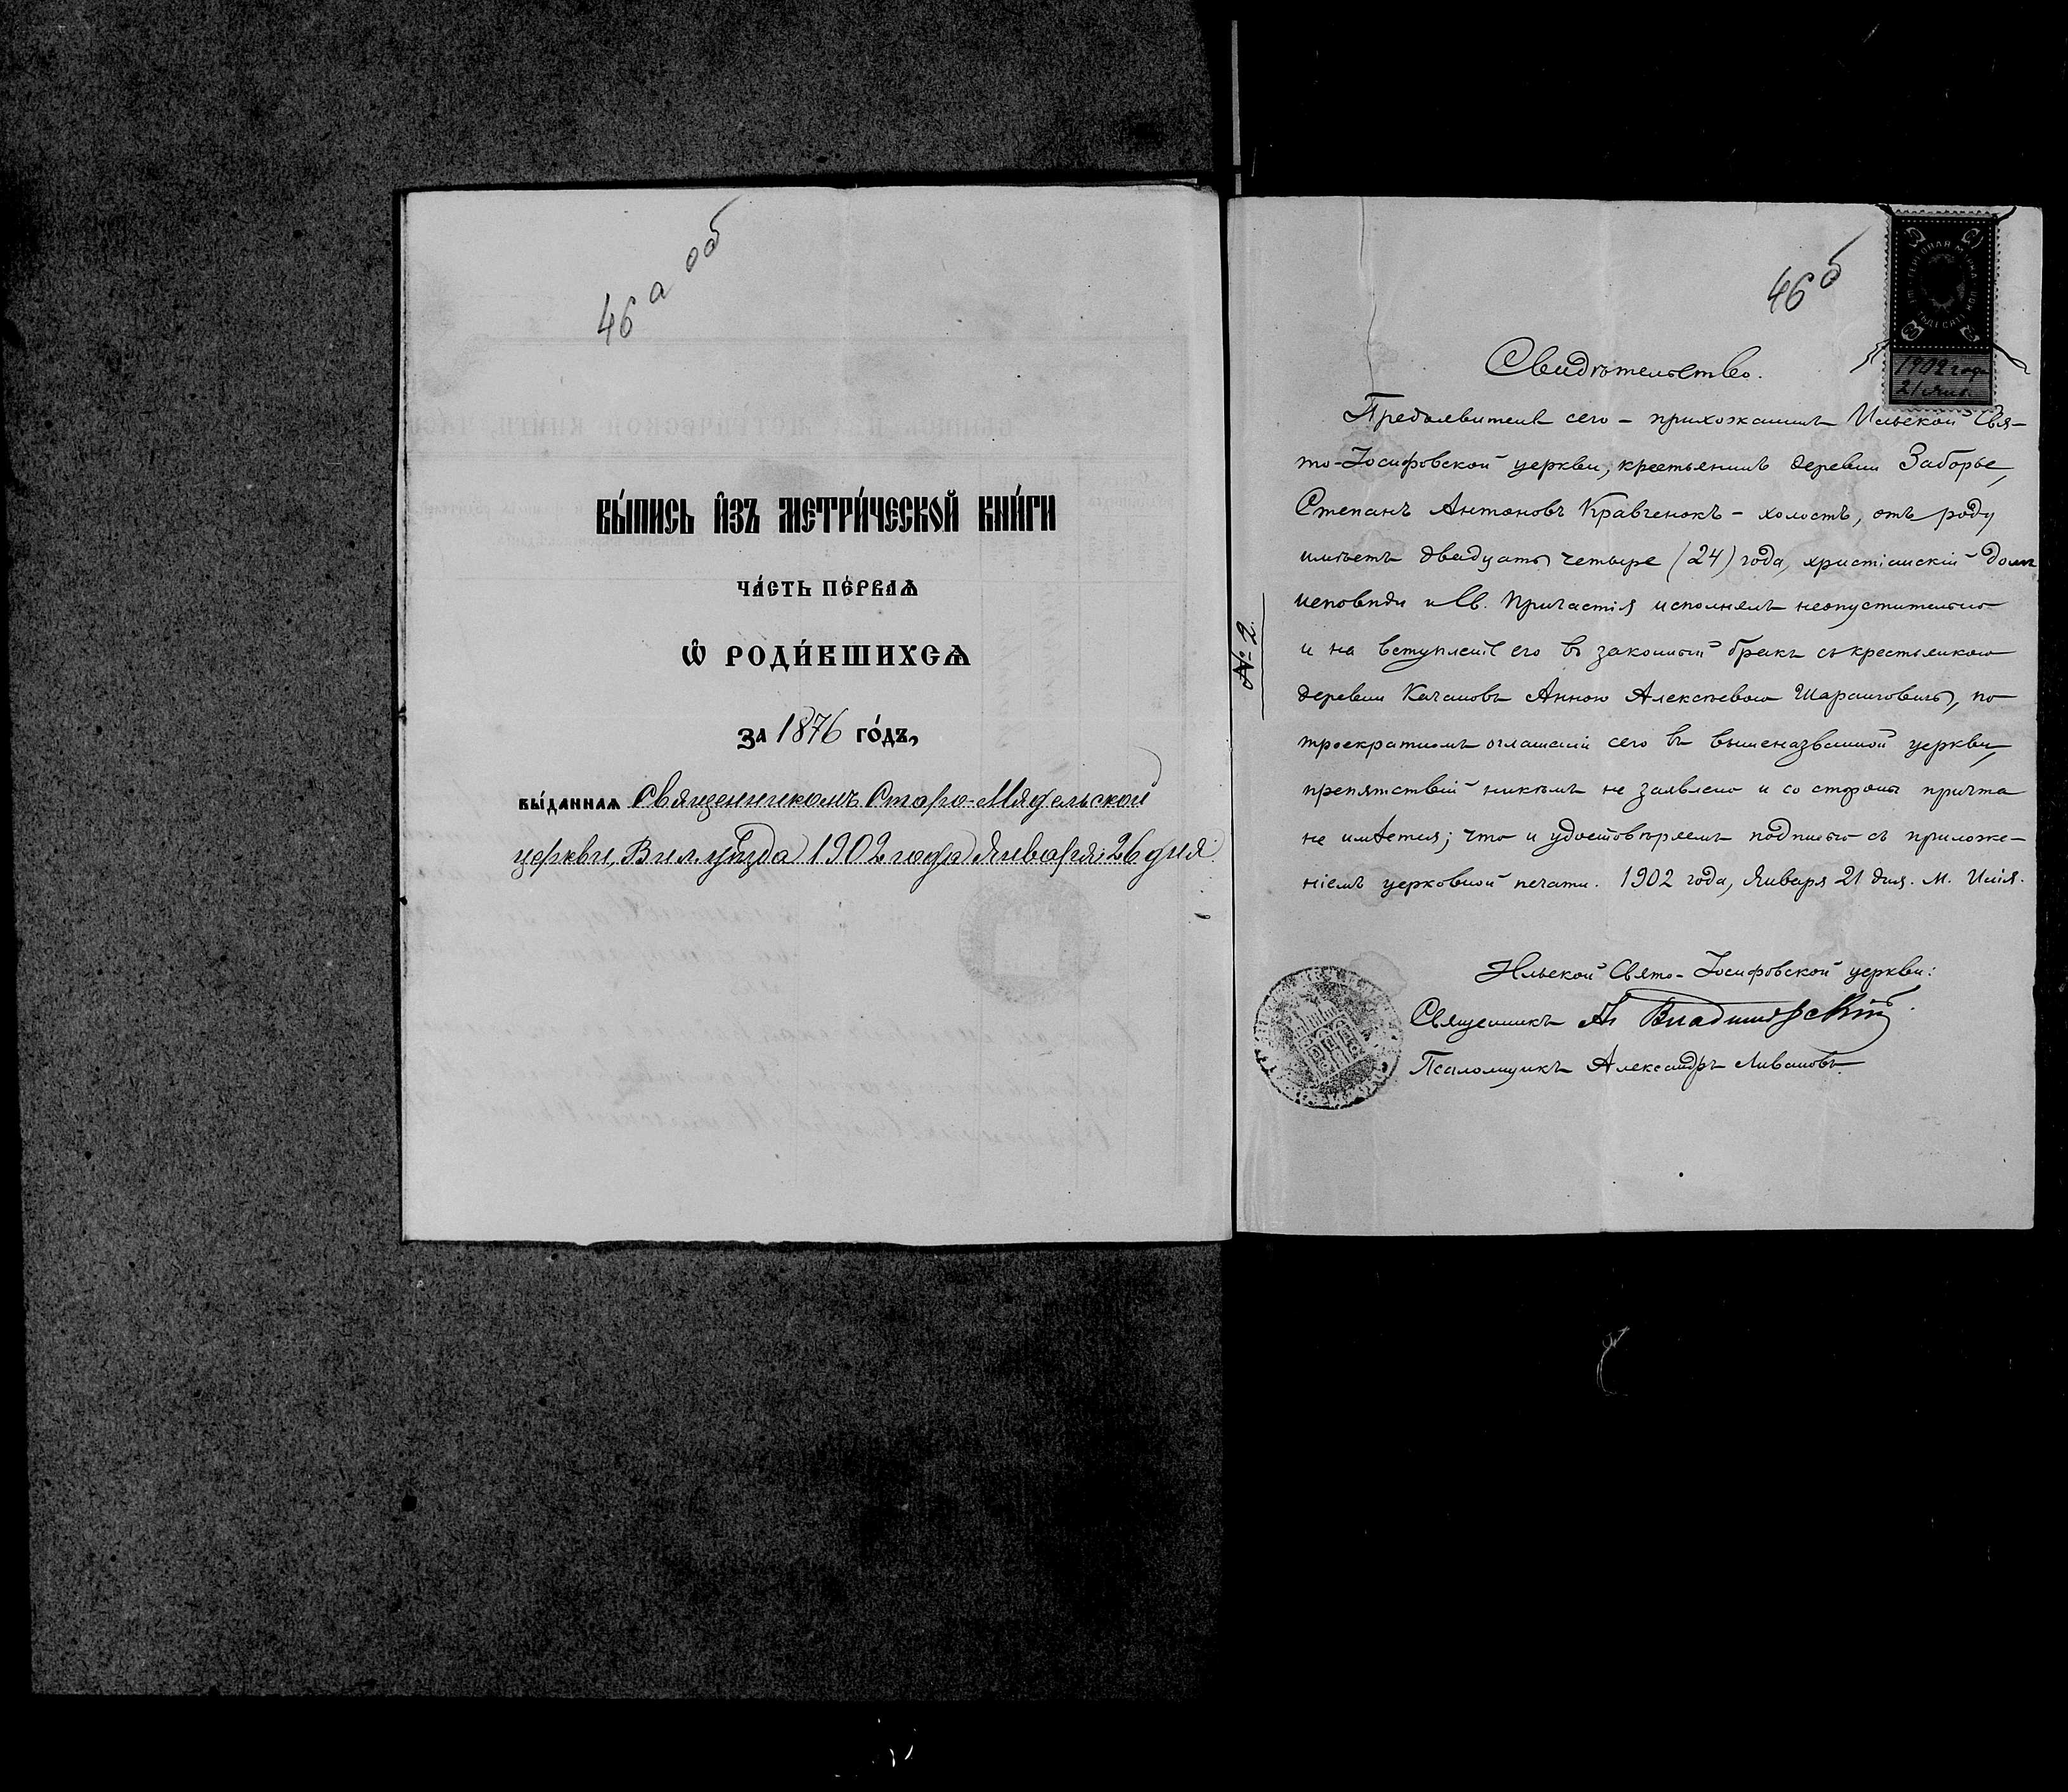 46 а об
ВЫ́ПИСЬ И҆ЗЪ МЕТРИ́ЧЕСКОЙ КНИ́ГИ
ЧА́СТЬ ПЕ́РВАѦ
Ѽ РОДИ́ВШИХСѦ
ЗА 1876 ГО́ДЪ,
ВЫ́ДАННАЯ Священникомъ Старо-Мядельской
церкви, Вил. уѣзда 1902 года Января 26 дня.
46 б
1902 года
21 янв.
№ 2.
Свидѣтельство.
Предъявитель сего – прихожанинъ Ильской Свя-
то-Іосифовской церкви, крестьянинъ деревни Заборье,
Степанъ Антоновъ Кравченокъ – холостъ, отъ роду
имѣетъ двадцать четыре (24) года, христіанскій долгъ
исповѣди и Св. Причастія исполнялъ неопустительно
и на вступленіе его въ законный бракъ съ крестьянкою
деревни Качановъ Анною Алексѣевою Шаранговичъ, по
троекратномъ оглашеніи сего въ вышеназванной церкви,
препятствій никѣмъ не заявлено и со стороны причта
не имѣется; что и удостовѣряемъ подписью съ приложе-
ніемъ церковной печати. 1902 года, Января 21 дня. М. Илія.
Ильской Свято-Іосифовской церкви:
Священникъ
Псаломщикъ Александръ Ливановъ